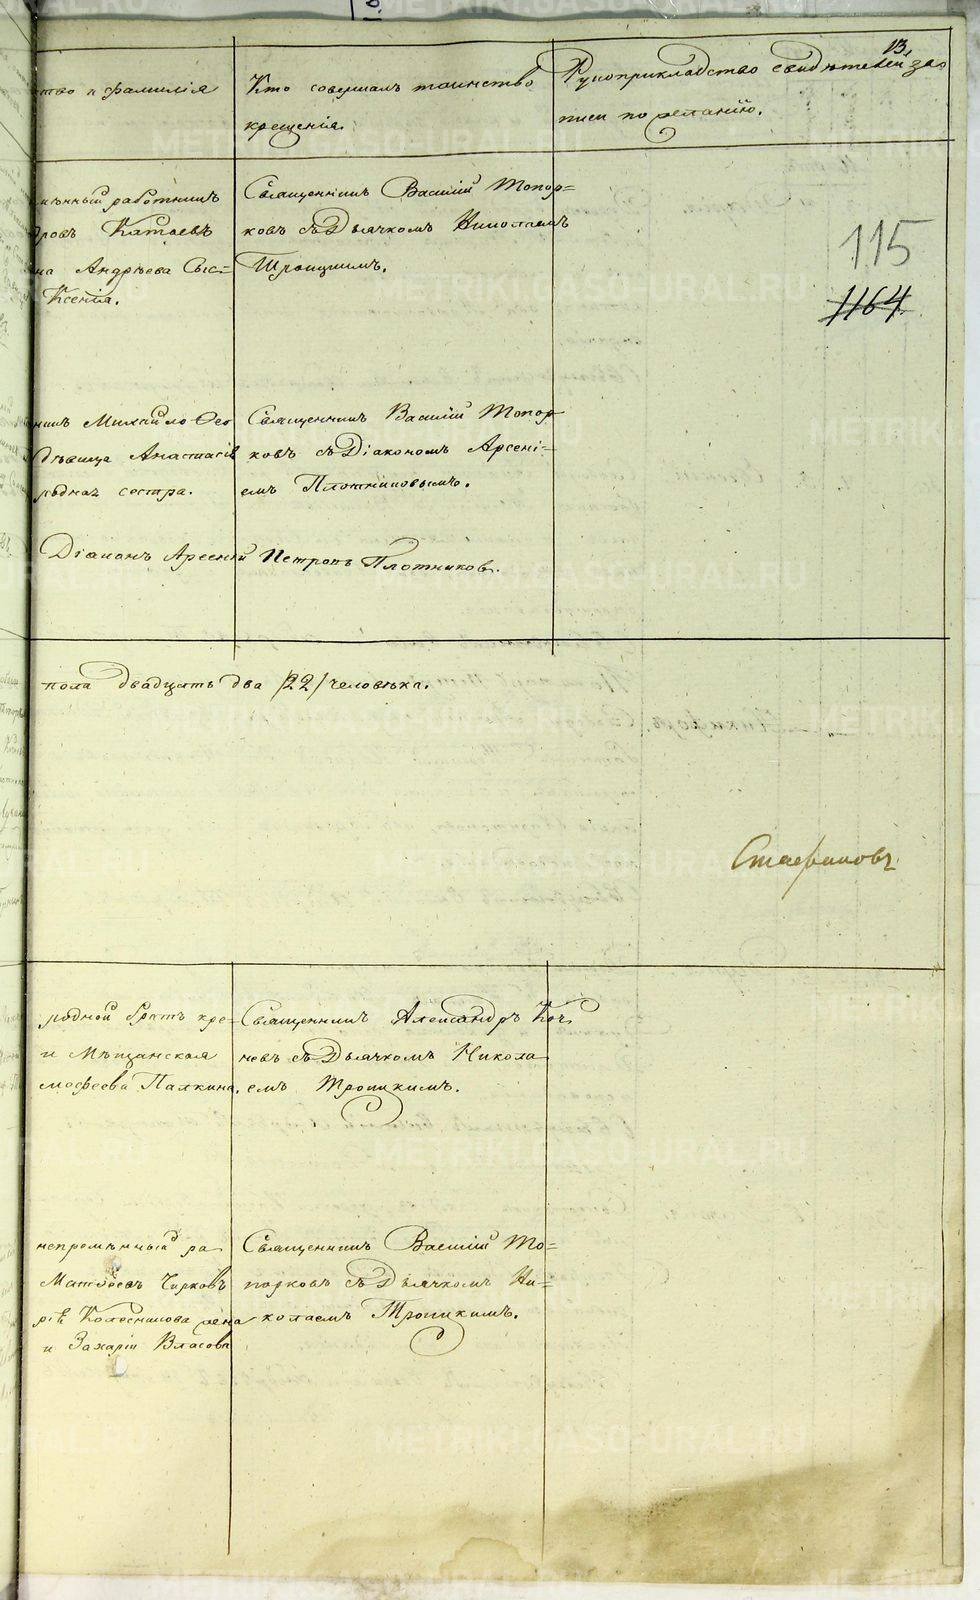 13.
ство и фамилія
Кто совершалъ таинство
крещенія.
Рукоприкладство свидѣтелей за=
писи по желанію.
115
1164
мѣнный работникъ
дровъ Катаевъ
на Андрѣева Сыс=
Ксенія.
Священникъ Василій Топор=
ковъ съ Дьячкомъ Николаемъ
Троицкимъ.
никъ Михайло Ѳео
Дѣвица Анастасія
родная сестра.
Священникъ Василій Топор
ковъ съ Діакономъ Арсені=
емъ Плотниковымъ.
Діаконъ Арсеній Петровъ Плотниковъ.
пола двадцать два /22/ человѣка.
Стафиновъ
родной братъ кре=
и Мѣщанская
мофеева Палкина.
Священникъ Александръ Коч
невъ съ Дьячкомъ Никола
емъ Троицкимъ.
непремѣнный ра
Матвѣевъ Чирковъ
рія Колесникова жена
и Захарій Власовъ
Священникъ Василій То=
порковъ съ Дьячкомъ Ни=
колаемъ Троицкимъ.
METRIKI.GASO-URAL.RU